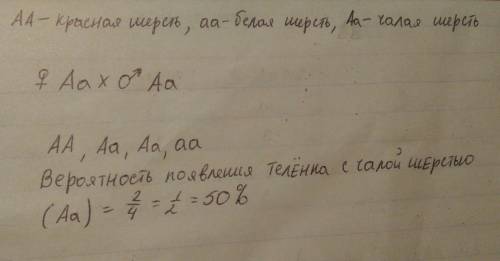 АА - красная шерсть, аа - белая шерсть, Аа - чалая шерсть
♀ Аа х ♂ Аа
АА, Аа, Аа, аа
Вероятность появления телёнка с чалой шерстью
(Аа) = 2/4 = 1/2 = 50%